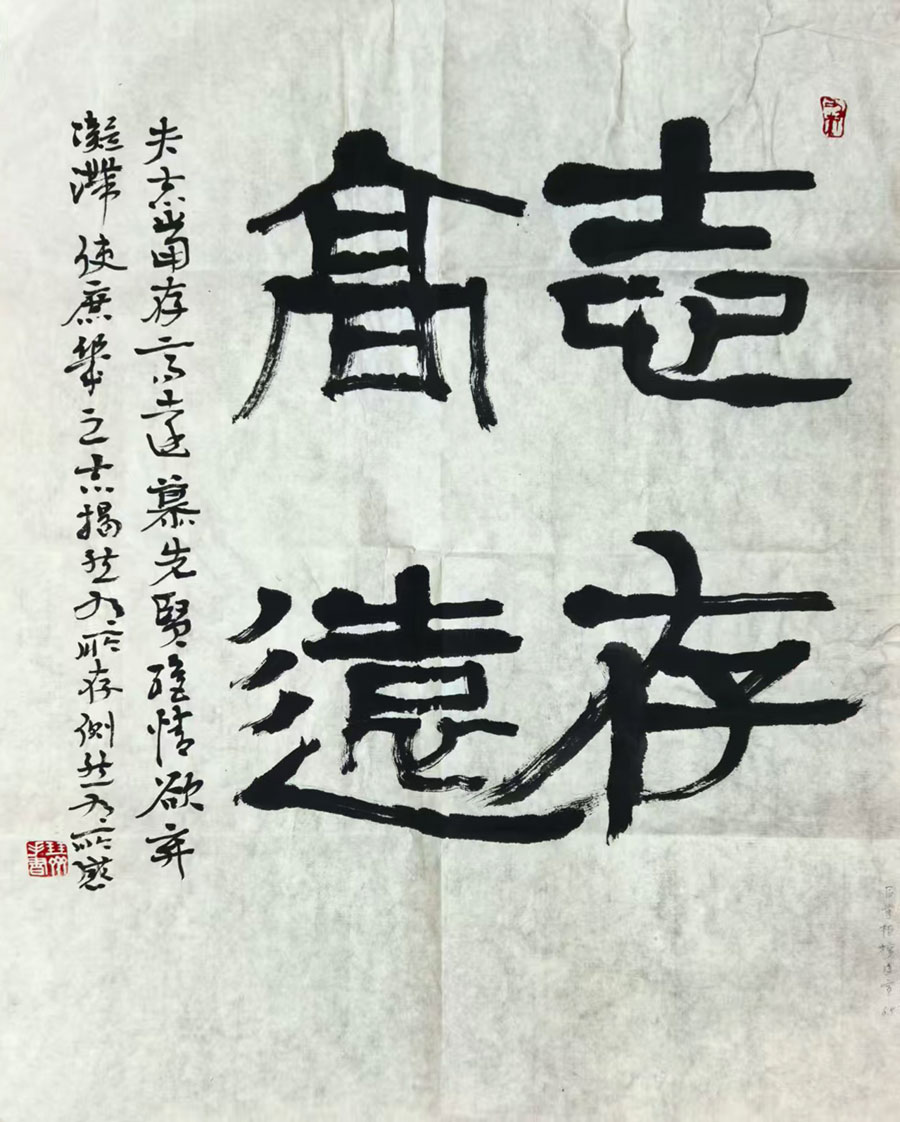 志存
高遠
夫志當存高遠慕先賢絶情欲弃
凝滯使庶幾之志揭然有所存惻然有所感